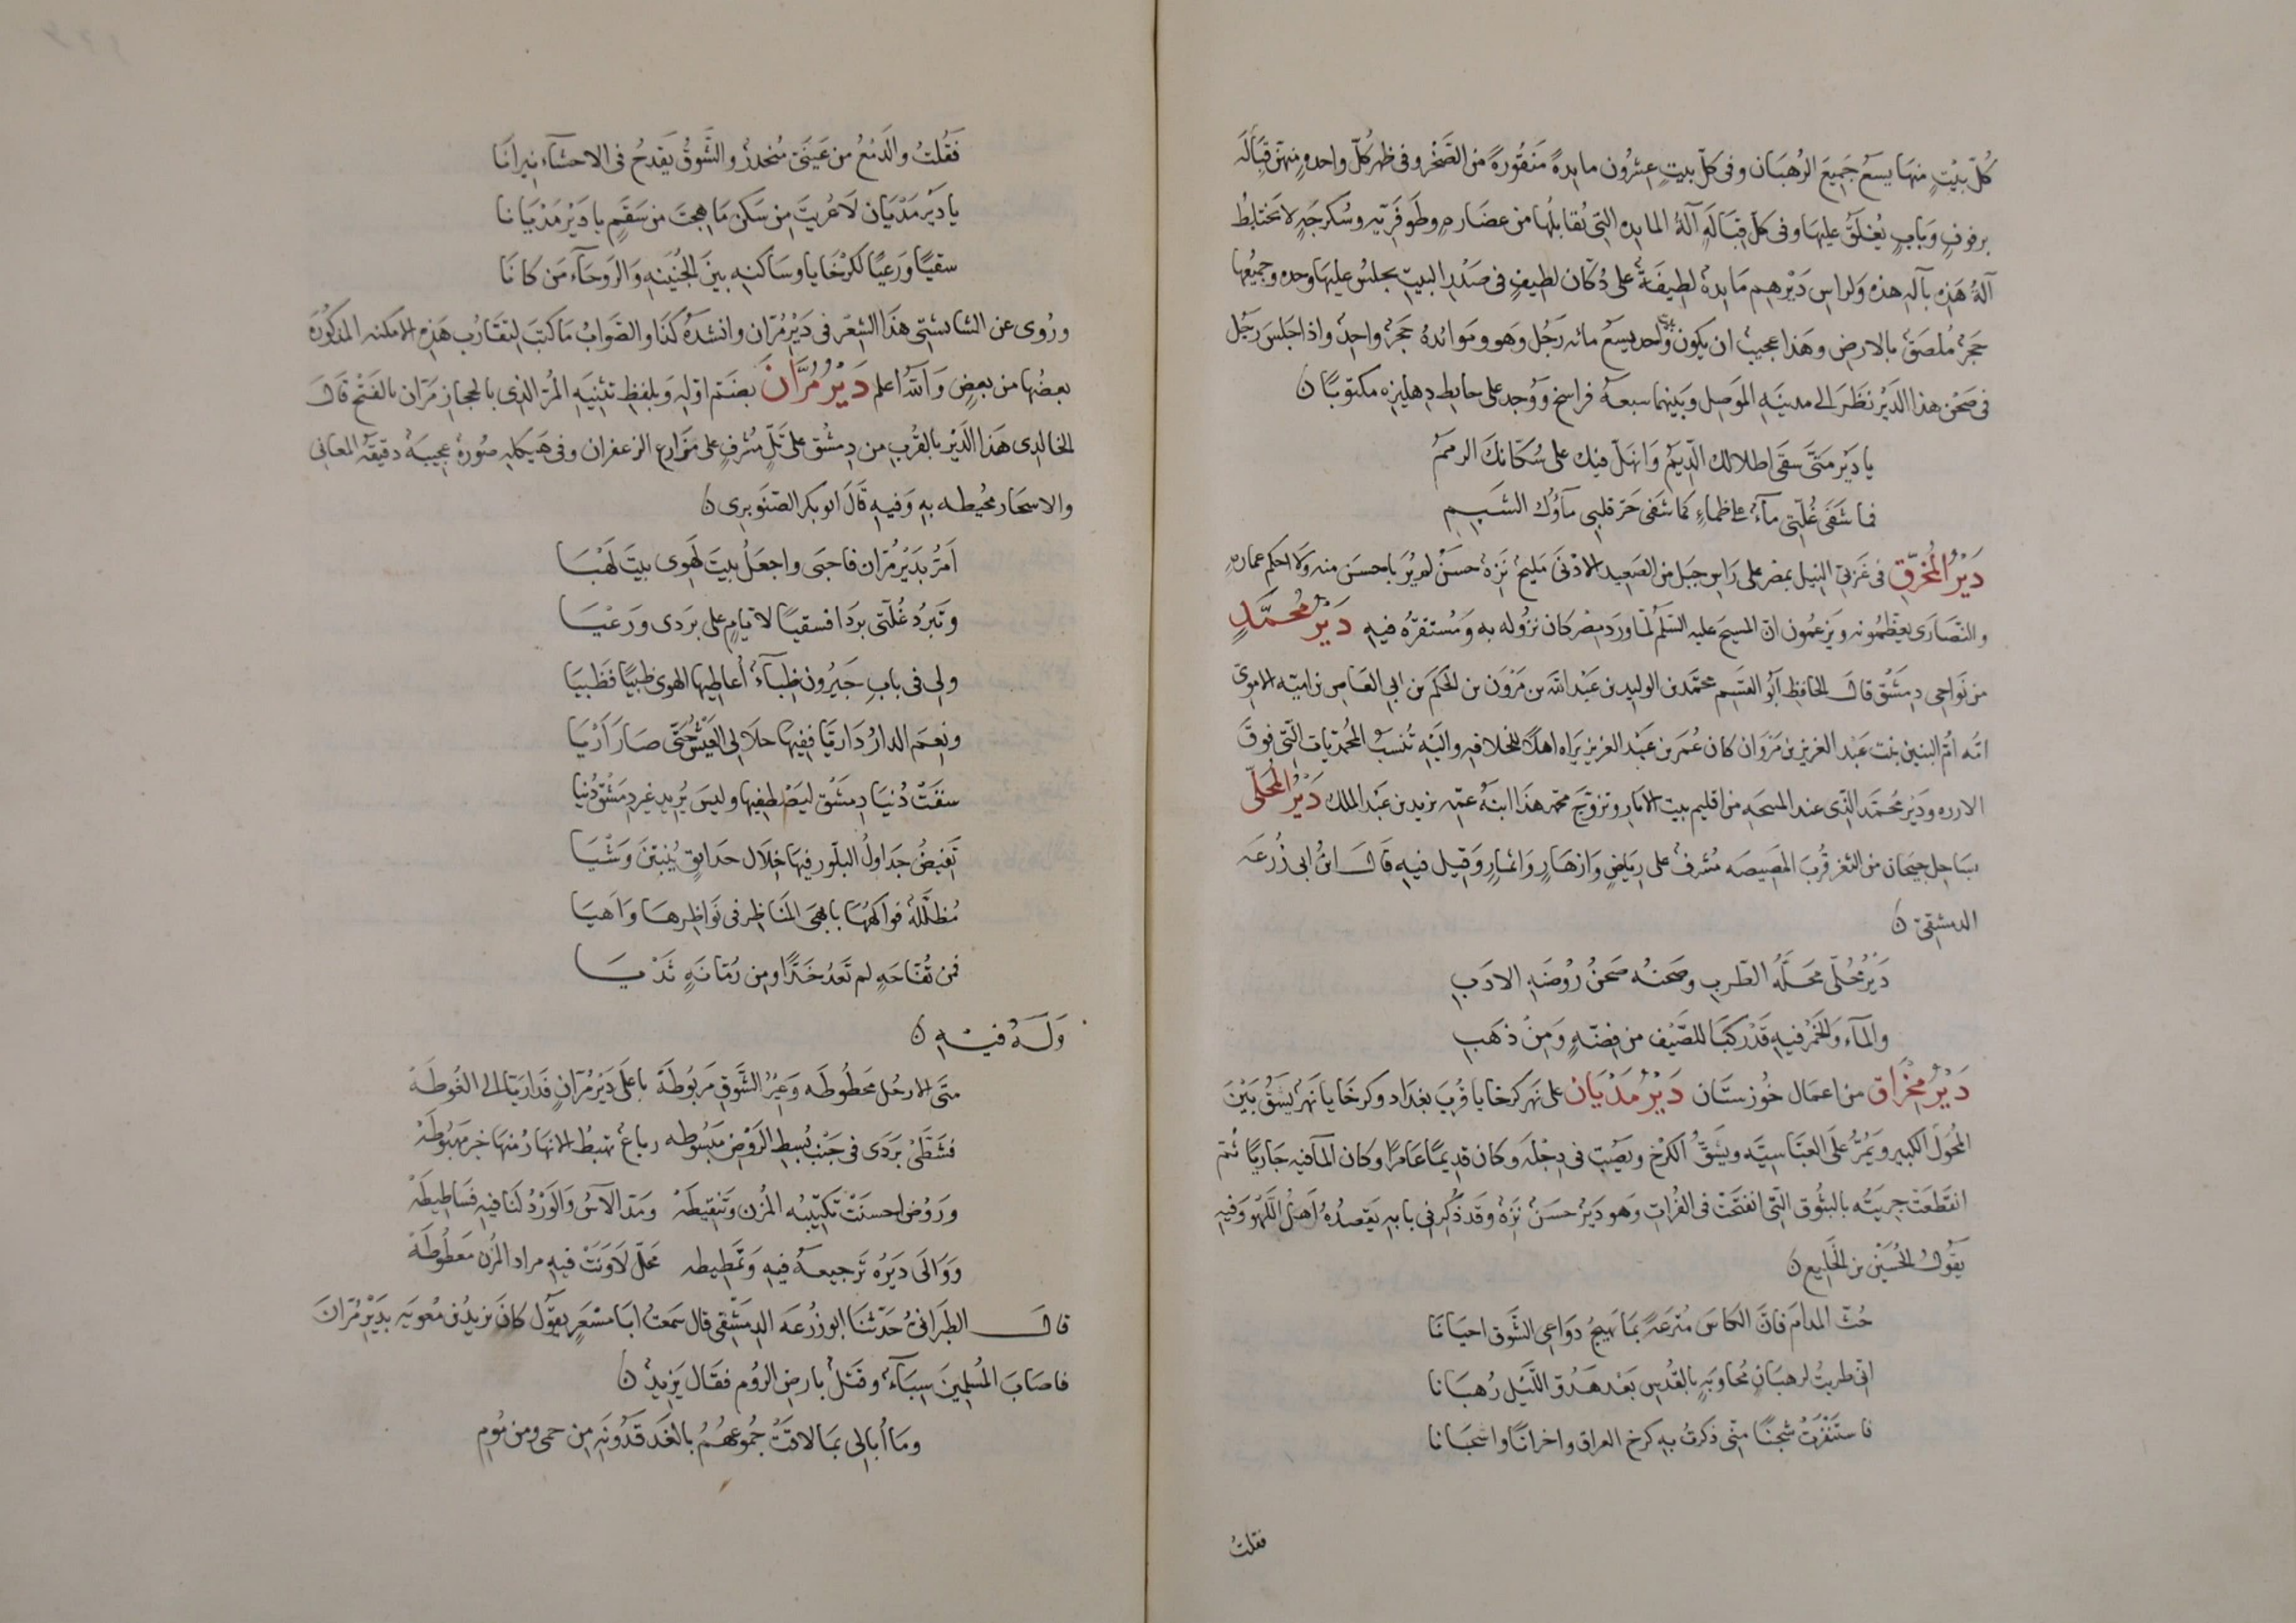 كُلّ بيْتٍ منهَا يسعُ جَمِيعَ الرُهبَان وفى كلّ بيتٍ عِشرُون مايدةً مَنقُورةً من الصَّخْر وفى ظهر كُلّ واحدةٍ منهنّ قِبَالَه
برفوفٍ وَبابٍ يُغلَقُ عليهَا وفى كلّ قِبَالَةٍ آلةُ المايده التى تُقابلُها من عضَارهٍ وطَوفَرّيهٍ وسُكرجَهٍ لا تختلِطُ
آلةُ هَذِهِ بآلةِ هذه وَلراس دَيْرهِم مَايدهٌ لطِيفَةٌ على دُكان لطِيفٍ فى صَدْرِ البيتِ يجلسُ عليهَا وحده وجميعُها
حجَرٌ مُلصَقٌ بالارضِ وهَذا عجيبٌ ان يكون بيت واحد يسعُ مائه رَجُل وَهو ومَوائدهُ حَجَرٌ واحِدٌ واذا جَلسَ رَجُل
فى صَحْن هذا الدَيْر نَظَرَ الى مدينَةِ الموَصِل وَبَينهما سبعهُ فراسخ وَوُجد على حايطِ دِهليزه مكتوبًا ن
يا ديْر مَتَّى سقى اطلالك الدّيَمُ وَانهَلّ فيك على سُكّانكَ الرهمُ
فما شَفَى غُلَّتى مآءٌ على ظماءٍ كمَا شَفى حَرّ قلبى مَآؤُك الشَبِمِ
دَيْرُ المُحَرَّقِ فى غَربىّ النِيل بمصْرِ على رَاسِ جَبَل من الصَعِيد الادْنَى مَليحٌ نَزِهٌ حسَنٌ لم يُرَ باحسَنَ منه وَلا احكم عمارهٍ
والنَّصَارَى يعَظّمُونه ويَزعُمُون انّ المسيحَ عليه السَلَمُ لمّا ورَدَ مِصْر كان نزُوله به وَمُستقرّهُ فيهِ دَيْرُ مُحَمَّدٍ
من نَواحِى دِمَشْق قال الحَافِظ ابُو القسَم محَمّد بن الوليد بن عَبْد الله بن مَرْوَن بن الحكَم بن ابى العَاصِ بن اميّه الامَوِىّ
امّه امُّ البنين بنت عَبْد العَزيز بن مَرْوَان كان عُمَر بن عَبْد العزيز يَراه اهلًا للخلافهِ واليْهِ تُنسَبُ المُحمّديّات التّى فوقَ
الارزه وَديْرُ محُمَّد الذِى عند المسحَه من اقليم بيت الابار وتزوَّجَ محمد هذا ابنَهُ عمّهِ يزيد بن عَبْد الملك دَيْرُ المُحَلَّى
بسَاحِل جيحَان من الثغر قُربَ المصِيصَه مُشرِفٌ على رِيَاضٍ وَازهَارٍ وَاثمارٍ وَقيل فيهِ قَالَ ابنُ ابى زُرعَه
الدمشقىّ ن
دَيْرُ مُحَلّى مَحَلّهُ الطَربِ وصَحنُه صَحنُ رُوْضَةِ الادَبِ
والمآء وَالخَمْرُ فيهِ قَدْ ركبَا للضَّيْف من فِضّةٍ وَمِن ذهَبِ
دَيْرُ مِخْرَاق من اعمَال خُوزستَان دَيْرُ مَدْيَان على نهَر كرخايا قُربَ بغدَاد وكرخَايا نَهرٌ يشُقُ مِنَ
المُحوَّل الكبير وَيَمُرُّ عَلَى العبّاسيَّه ويشقُّ الكَرْخ ويَصُب فى دِجْلَه وَكان قدِيمًا عَامرًا وكان المآفيه جَاريًا ثُمّ
انقَطعَتْ جِريَتُه بالبثُوق التّى انفتَحَتْ فى الفُرات وَهو ديْرٌ حسَنٌ نَزهٌ وقَد ذُكِر فى بابهِ يَقصِدُهُ اَهلُ اللَهْو وَفيهِ
يقُولُ الحُسَيْن بن الخَلِيع ن
حُثّ المدامَ فانّ الكاسَ مُترَعَةً بمَا يَهيجُ دوَاعِى الشَّوق احيَانَا
انّى طربتُ لرهبَانٍ مُجاوبَةٍ بالقُدْسِ بَعْد هَدُوّ اللّيَل رُهبَانا
فاستَنفرتْ شجَنًا منّى ذكرتُ بهِ كرخ العراق واخوانًا واشجَانا
فقلتُ
فَقُلتُ والدَمْعُ من عَينَىَّ مُنحَدرٌ والشَوقُ يَقدحُ فى الاحشآءِ نيرانَا
يا دَيْر مَدْيَان لا عُريتَ مِن سَكَن مَا هِجتَ من سَقَمٍ يا دَيْر مَدْيَانا
سقيًا وَرعيًا لكرْخَايا وسَاكنهِ بينَ الجُنَيْنَهِ وَالرَوحَآء مَن كانَا
ورُوى عن الشابشتىّ هذَا الشِعْر فى دَيْر مُرّان وانشدَهُ كذَا والصَوابُ مَا كتبَ لتقَارُب هَذِهِ الامكنه المذكُورَه
بعضُها من بعضٍ وَاللهُ اعلم دَيْرُ مُرَّانَ بضَمّ اوّلهِ وَبلفظِ تثنيَهِ المُرّ الذى بالحجاز مُرّان بالفَتْح قَالَ
الخالدِى هَذا الدَيْرُ بالقُربِ من دِمشق على تَلٍّ مُشْرفٍ على مزَارع الزعفران وفى هَيكلهِ صُورةٌ عجيبَهٌ دقيقَهُ المعَانى
والاسجَار محيُطه بهِ وَفيهِ قَالَ ابو بكر الصّنَوبرى ن
اَمُرُّ بدَيْر مُرّان فاحيَى واجعَلُ بيتَ لَهْوِى بيتَ لَهْيَا
وتَبرُدُ غُلّتى بردَا فسقيًا لايّامٍ على بَردَى ورَعْيَا
ولى فى بابِ جَيْرُون ظبَآءٌ اُعاطيهَا الهوى ظبيًا فَظَبيَا
ونِعمَ الدارُ دَاريّا ففيهَا حلا لى العَيْشُ حَتّى صَارَ اَرْيَا
سقَتْ دُنيَا دِمشْق ليَصْطفيهَا وليسَ يُريد غير دِمَشْق دُنيَا
تَفيضُ جدَاولُ البلّور فيهَا خِلَال حَدايِق يُنبتنَ وَشْيَا
مُظلّلَهٌ فواكهُهَا باَبهَى المنَاظِر فى نَواظِرهَا وَاَهيَا
فمن تُفّاحَهٍ لم تَعدُ خَدّا ومِن رُمّانَهٍ ثَدْيَا
وَلَهُ فيهِ ن
متَى الارحُل مَحطُوطَه وَعِيرُ الشَّوقِ مَربُوطَهْ باعلَى دَيْر مُرّانٍ فَدَارَيّا الى الغُوطَهْ
فشَطَّىْ بَرَدَى فى جَنْبِ بُسطِ الرَّوْض مَبْسُوطه رباعٌ تهبطُ الانهارُ منهَا خير مَهْبُوطَهْ
وَرَوْضٍ احسَنَتْ تكتِيبُه المُزْن وتَنقِيطَهْ ومَدّ الآسُ وَالوَرْدُ لنَا فيهِ فسَاطِيطَهْ
وَوَالَى دَيَرُه تَرجيعهُ فيهِ وَتمَطِيطه محَلّ لَا وَنَتْ فيهِ مراد المُزن مَعطُوطَهْ
قالَ الطبَرانىّ حَدّثنَا ابو زُرعَه الدِمَشْقِى قال سمَعتُ ابَا مسْعَرٍ يقوُل كانَ يزيدُ بن مُعويَه بدَيْر مُرّانَ
فاصَابَ المُسلِمينَ سِبَآءٌ وقَتلٌ بارضِ الرُوم فقَال يَزيدُ ن
ومَا اُبَالِى بمَا لاقتْ جُمُوعهُمُ بالغَدقَدُونَهِ مِن حمى ومن مُومِ